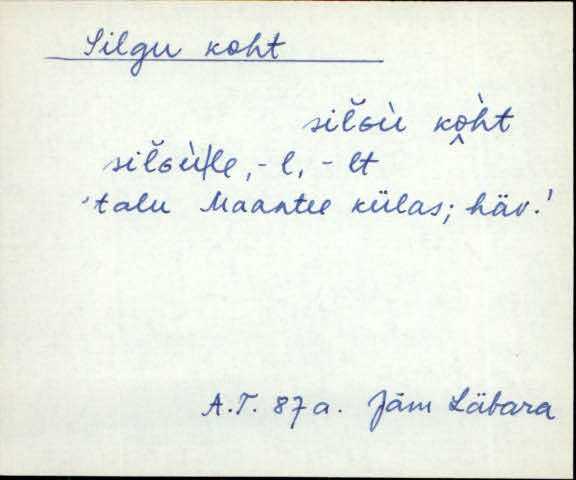 Silgu koht
silˇɢù kòht
silˇɢù|le, -l, -lt
'talu Maantee külas; häv.'
A.T. 87a. Jäm Läbara